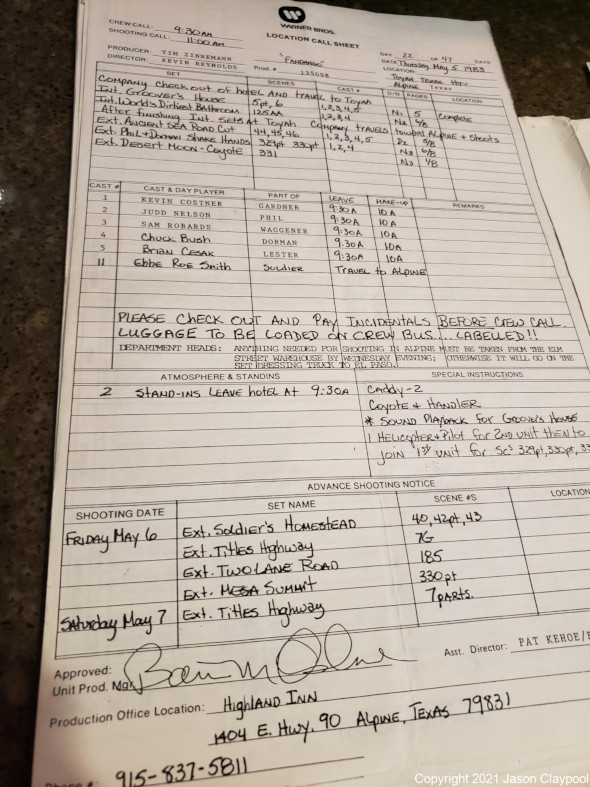 WARNER BROS.
LOCATION CALL SHEET
CREW CALL: 9:30AM
SHOOTING CALL: 11:00 AM
PRODUCER: TIM ZINNEMANN
DIRECTOR: KEVIN REYNOLDS
"FANDANGO"
Prod # 135038
DAY 22 OF 47 DAYS
DATE Thursday May 5 1983
LOCATION: Toyah Texas thru
Alpine Texas
SET SCENES CAST # D/N PAGES LOCATION
Company check out of hotel AND travel to Toyah
Int. Groover's House 5pt, 6 1,2,3,4,5 N1 5 Complete
Int. World's Dirtiest Bathroom 125AA 1,2,3,4 N2 5/8
After finishing Int. Sets At Toyah Company travels toward Alpine & Shoots
Ext. Ancient Sea Road Cut 44,45,46 1,2,3,4,5 D2 5/8
Ext. Phil & Dorman Shake Hands 329pt 330pt 1,2,4 N3 6/8
Ext. Desert Moon - Coyote 331 N3 1/8
CAST # CAST & DAY PLAYER PART OF LEAVE MAKE-UP REMARKS
1 KEVIN COSTNER GARDNER 9:30A 10A
2 JUDD NELSON PHIL 9:30A 10A
3 SAM ROBARDS WAGGENER 9:30A 10A
4 Chuck Bush DORMAN 9:30A 10A
5 Brian Cesak LESTER 9:30A 10A
11 Ebbe Roe Smith Soldier TRAVEL to Alpine
PLEASE Check OUT AND PAY INCIDENTALS BEFORE CREW CALL.
LUGGAGE TO BE LOADED ON CREW BUS.... LABELLED!!
DEPARTMENT HEADS: ANYTHING NEEDED FOR SHOOTING IN ALPINE MUST BE TAKEN FROM THE ELM
STREET WAREHOUSE BY WEDNESDAY EVENING; OTHERWISE IT WILL GO ON THE
SET DRESSING TRUCK TO EL PASO.
ATMOSPHERE & STANDINS SPECIAL INSTRUCTIONS
2 STAND-INS LEAVE hotel At 9:30A
Caddy-2
Coyote & HANDLER
* Sound Playback for Groover's House
1 Helicopter & Pilot for 2ND unit then to
join 1st unit for Sc's 329pt, 330pt, 33
ADVANCE SHOOTING NOTICE
SHOOTING DATE SET NAME SCENE #S LOCATION
FRIDAY MAY 6 Ext. Soldier's Homestead 40, 42pt, 43
Ext. Titles Highway 7G
Ext. Two LANE ROAD 185
Ext. MESA SUMMIT 330pt
Saturday May 7 Ext. Titles Highway 7 PARTS.
Approved:
Unit Prod. Mgr.
Asst. Director: PAT KEHOE/
Production Office Location: Highland Inn
1404 E. Hwy. 90 Alpine, Texas 79831
Phone #: 915-837-5811
Copyright 2021 Jason Claypool